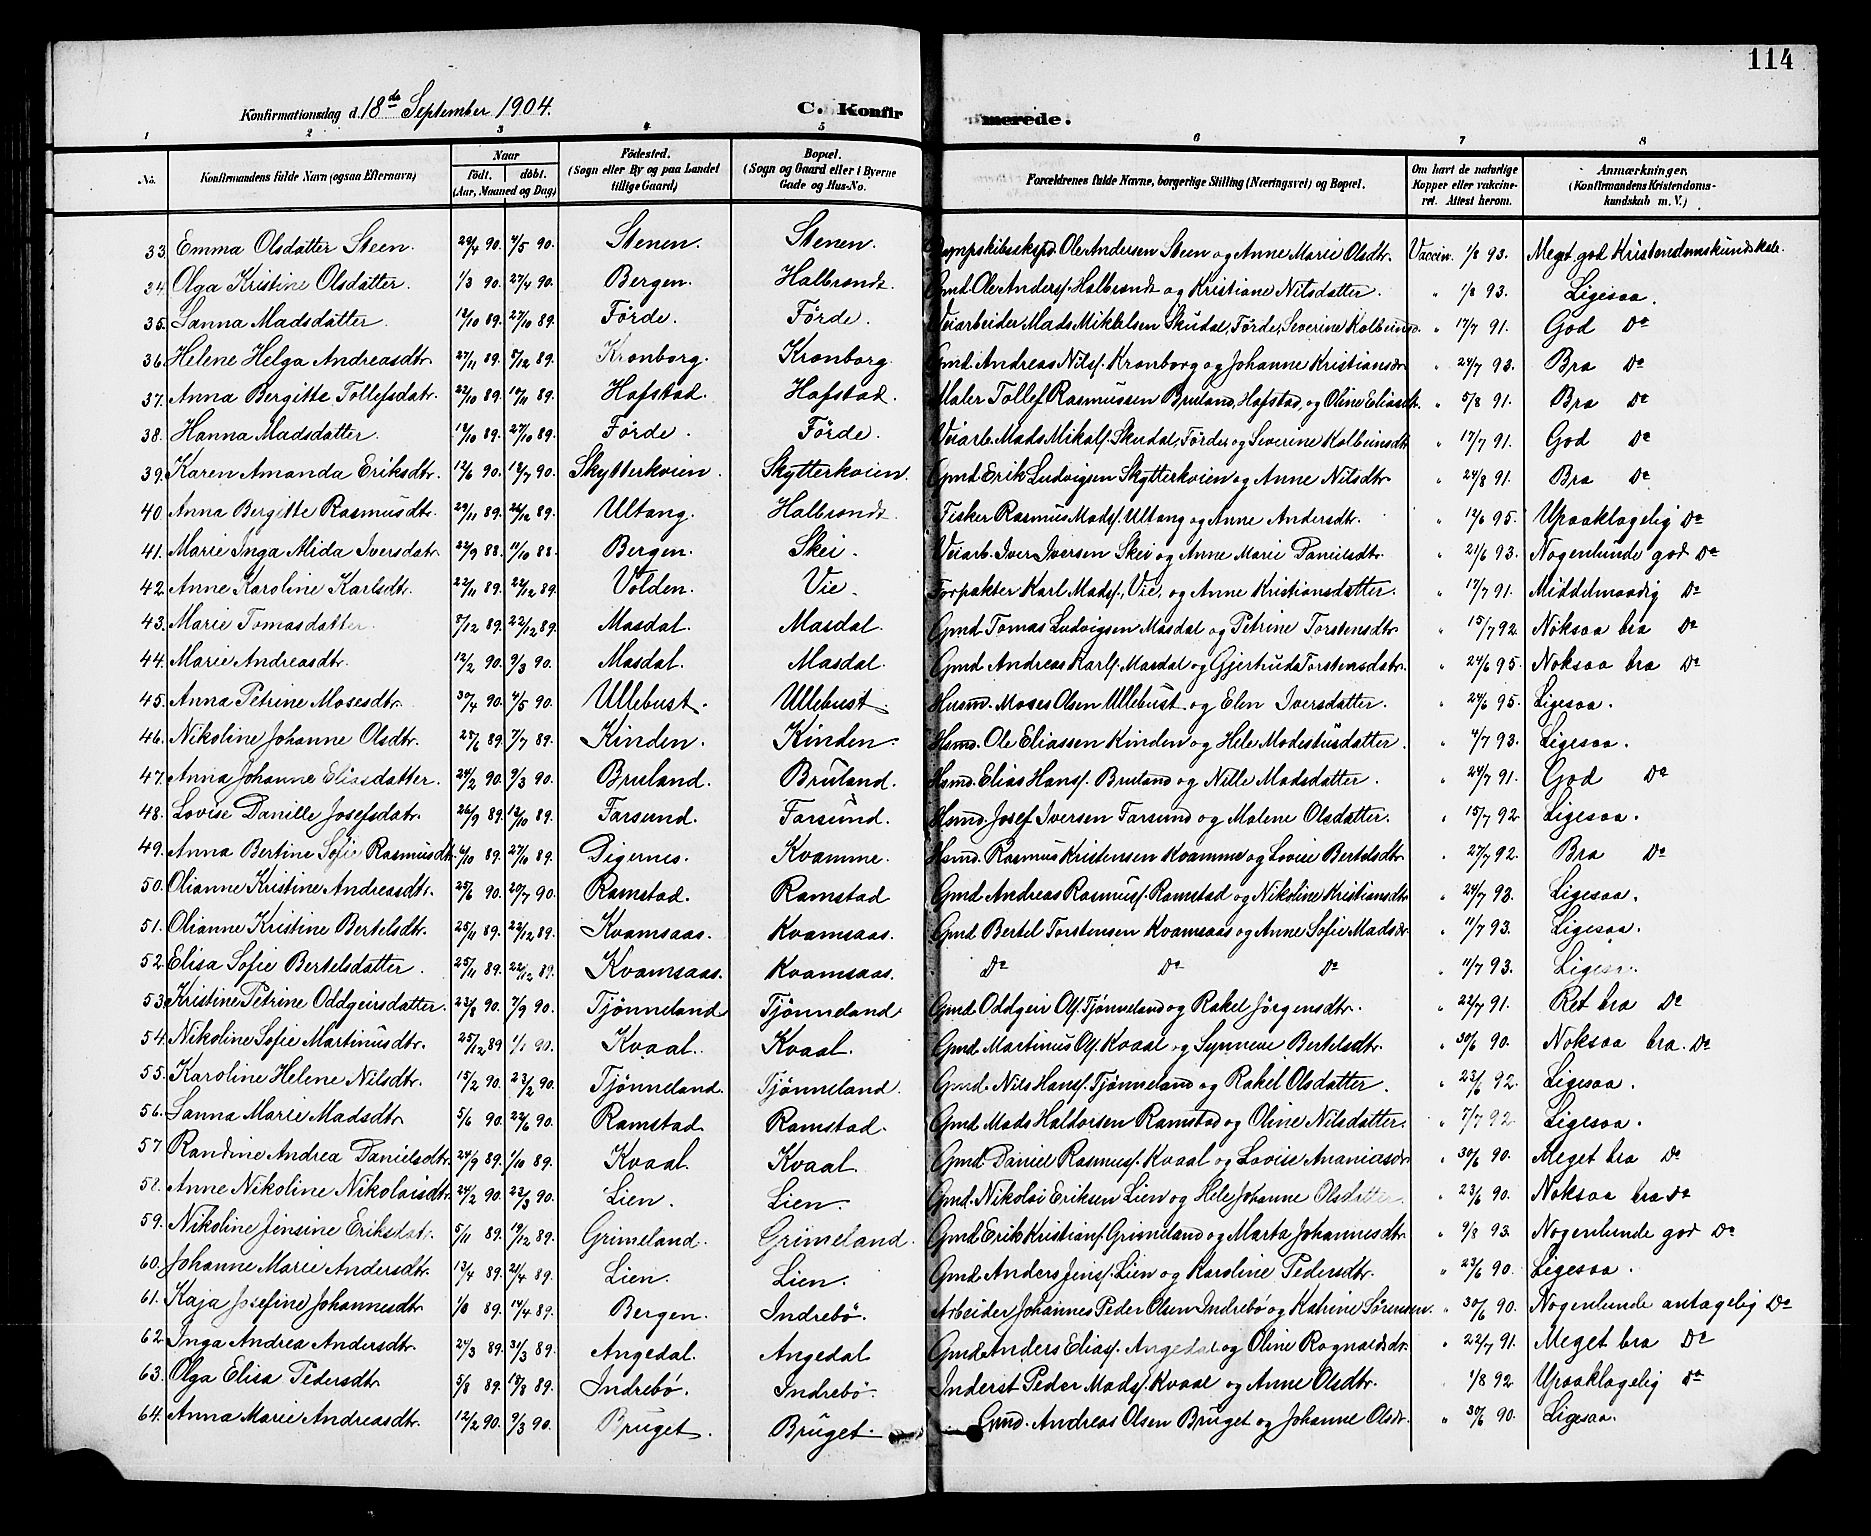 114
Konfirmationsdag d. 18de September 1904.
C. Konfirmerede.
1 2 3 4 5 6 7 8
No. Konfirmandens fulde Navn (ogsaa Efternavn) Naar født. døbt. (Aar, Maaned og Dag) Fødested. (Sogn eller By og paa Landet tillige Gaard) Bopæl. (Sogn og Gaard eller i Byerne Gade og Hus-No. Forældrenes fulde Navne, borgerlige Stilling (Næringsvei) og Bopæl. Om havt de naturlige Kopper eller vakcineret. Attest herom. Anmærkninger. (Konfirmandens Kristendomskundskab m. V.)
33. Emma Olsdatter Steen. 29/4 90. 4/5 90. Stenen. Stenen. Ole Andersen Steen og Anne Marie Olsdtr. Vaccin. 1/8 93. Meget god Kristendomskundskab.
34. Olga Kristine Olsdatter. 1/3 90. 27/4 90. Bergen. Halbrendt. Gmd. Ole Anders. Halbrendt og Kristiane Nilsdatter. " 1/8 93. Ligesaa.
35. Sanna Madsdatter. 12/10 89. 27/10 89. Förde. Förde. Veiarbeider Mads Mikkelsen Skudal, Förde, Severine Kolbeinsd. " 17/7 91. God Do
36. Helene Helga Andreasdtr. 27/11 89. 8/12 89. Kronborg. Kronborg. Gmd. Andreas Nils. Kronborg og Johanne Kristiansdr " 24/7 93. Bra Do
37. Anna Bergitte Tollefsdatr. 22/10 89. 17/11 89. Hafstad. Hafstad. Maler Tollef Rasmussen Bruland, Hafstad, og Oline Eliasdt. " 5/8 91. Bra Do
38. Hanna Madsdatter. 12/10 89. 27/10 89. Förde. Förde. Veiarb. Mads Mikals. Skudal, Förde, og Severine Kolbeinsdtr " 17/7 91. God Do
39. Karen Amanda Eriksdtr. 12/6 90. 12/7 90. Skytterkvien. Skytterkvien. Gmd. Erik Ludvigsen Skytterkvien og Anne Nilsdtr " 24/8 91. Bra Do
40. Anna Bergitte Rasmusdtr. 29/11 89. 26/12 89. Ultang. Halbrendt. Fisker Rasmus Mads. Ultang og Anne Andersdtr. " 12/6 95. Upaaklagelig Do
41. Marie Inga Alida Iversdatr. 22/9 88. 11/10 88. Bergen. Skei. Veiarb. Iver Iversen Skei og Anne Marie Danielsdtr. " 21/6 93. Nogenlunde god Do
42. Anne Karoline Karlsdtr. 22/11 89. 22/12 89. Volden. Vie. Forpakter Karl Mads., Vie, og Anne Kristiansdatter. " 17/7 91. Middelmaadig Do
43. Marie Tomasdatter. 8/12 89. 22/12 89. Masdal. Masdal. Gmd. Tomas Ludvigsen Masdal og Petrine Torstensdtr. " 15/7 92. Noksaa bra Do
44. Marie Andreasdtr. 12/2 90. 9/3 90. Masdal. Masdal. Gmd. Andreas Karls. Masdal og Gjertruds Torstensdatr. " 24/6 95. Noksaa bra Do
45. Anna Petrine Mosesdtr. 30/4 90. 4/5 90. Ullebust. Ullebust. Husmd. Moses Olsen Ullebust. og Elen Iversdatter. " 24/6 95. Ligesaa.
46. Nikoline Johanne Olsdtr. 28/6 89. 7/7 89. Kinden. Kinden. Hsmd. Ole Eliassen Kinden og Hele Modestusdatter. " 4/7 93. Ligesaa.
47. Anna Johanne Eliasdatter. 24/2 90. 9/3 90. Bruland. Bruland. Hsmd. Elias Hans. Bruland og Nille Madsdatter. " 24/7 91. God Do
48. Lovise Danille Josefsdatr. 26/9 89. 13/10 89. Farsund. Farsund. Hsmd. Josef Iversen Farsund og Malene Olsdatter. " 15/7 92. Ligesaa.
49. Anna Bertine Sofie Rasmusdtr. 6/10 89. 27/10 89. Digernes. Kvamme. Hsmd. Rasmus Kristensen Kvamme og Lovise Bertelsdtr " 27/7 92. Bra Do
50. Olianne Kristine Andreasdtr. 25/6 90. 20/7 90. Ramstad. Ramstad Gmd Andreas Rasmus. Ramstad og Nikoline Kristiansdtr " 24/7 93. Ligesaa.
51. Olianne Kristine Bertelsdtr. 25/11 89. 22/12 89. Kvamsaas. Kvamsaas. Gmd Bertel Torstensen Kvamsaas og Anne Sofie Madsdr " 11/7 93. Ligesaa.
52. Elisa Sofie Bertelsdatter. 25/11 89. 22/12 89. Kvamsaas. Kvamsaas. Do Do Do " 11/7 93. Ligesaa.
53. Kristine Petrine Oddgeirsdatter. 23/8 90. 7/9 90. Tjönneland Tjönneland Gmd. Oddgeir Ols. Tjönneland og Rakel Jörgensdtr. " 22/7 91. Ret bra Do
54. Nikoline Sofie Martinusdtr. 25/12 89 1/1 90. Kvaal. Kvaal. Gmd. Martinus Ols. Kvaal og Synneve Bertelsdtr. " 30/6 90. Noksaa bra. Do
55. Karoline Helene Nilsdtr. 15/2 90. 23/2 90. Tjönneland. Tjönneland. Gmd. Nils Hans. Tjönneland og Rakel Olsdatter. " 23/6 92. Ligesaa.
56. Sanna Marie Madsdtr 5/6 90. 22/6 90. Ramstad Ramstad. Gmd. Mads Haldorsen Ramstad og Oline Nilsdatter. " 7/7 92. Ligesaa.
57 Randine Andrea Danielsdtr. 24/9 89. 1/10 89. Kvaal. Kvaal. Gmd. Daniel Rasmus. Kvaal og Lovise Ananiasdr " 30/6 90. Meget bra Do
58. Anne Nikoline Nikolaisdtr. 24/2 90. 23/3 90. Lien. Lien. Gmd. Nikolai Eriksen Lien og Hele Johanne Olsdatter " 23/6 90. Noksaa bra Do
59. Nikoline Jensine Eriksdatr. 5/11 89. 19/12 89. Grimeland. Grimeland. Gmd. Erik Kristians. Grimeland og Marta Johannesdtr. " 9/8 93. Nogenlunde god Do
60. Johanne Marie Andersdtr. 13/4 89. 21/4 89. Lien. Lien. Gmd. Anders Jens. Lien og Karoline Pedersdtr. " 23/6 90. Ligesaa.
61. Kaja Josefine Johannesdtr 1/8 89. 14/4 89. Bergen. Indrebö. Arbeider Johannes Peder Olsen Indrebö og Katrine Sörensen. " 30/6 90. Nogenlunde antagelig Do
62. Inga Andrea Andersdtr. 24/3 89. 31/3 89. Angedal. Angedal Gmd. Anders Elias. Angedal og Oline Rognaldsdr. " 22/7 91. Meget bra Do
63. Olga Elisa Pedersdtr 5/8 89. 18/8 89. Indrebö. Indrebö. Inderst Peder Mads. Kvaal og Anne Olsdtr. 1/8 92. Upaaklagelig Do
64. Anna Marie Andreasdtr. 12/2 90. 9/3 90. Bruget. Bruget. Gmd. Andreas Olsen Bruget og Johanne Olsdr. " 30/6 90. Ligesaa.